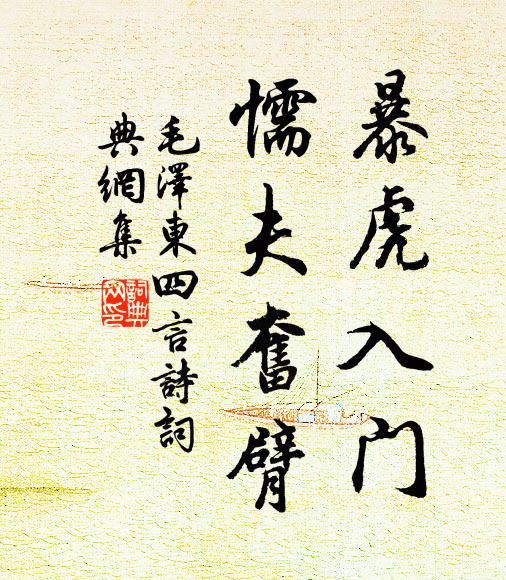 暴虎入门
懦夫奮臂
毛澤東四言詩詞
典網集
詞典网印